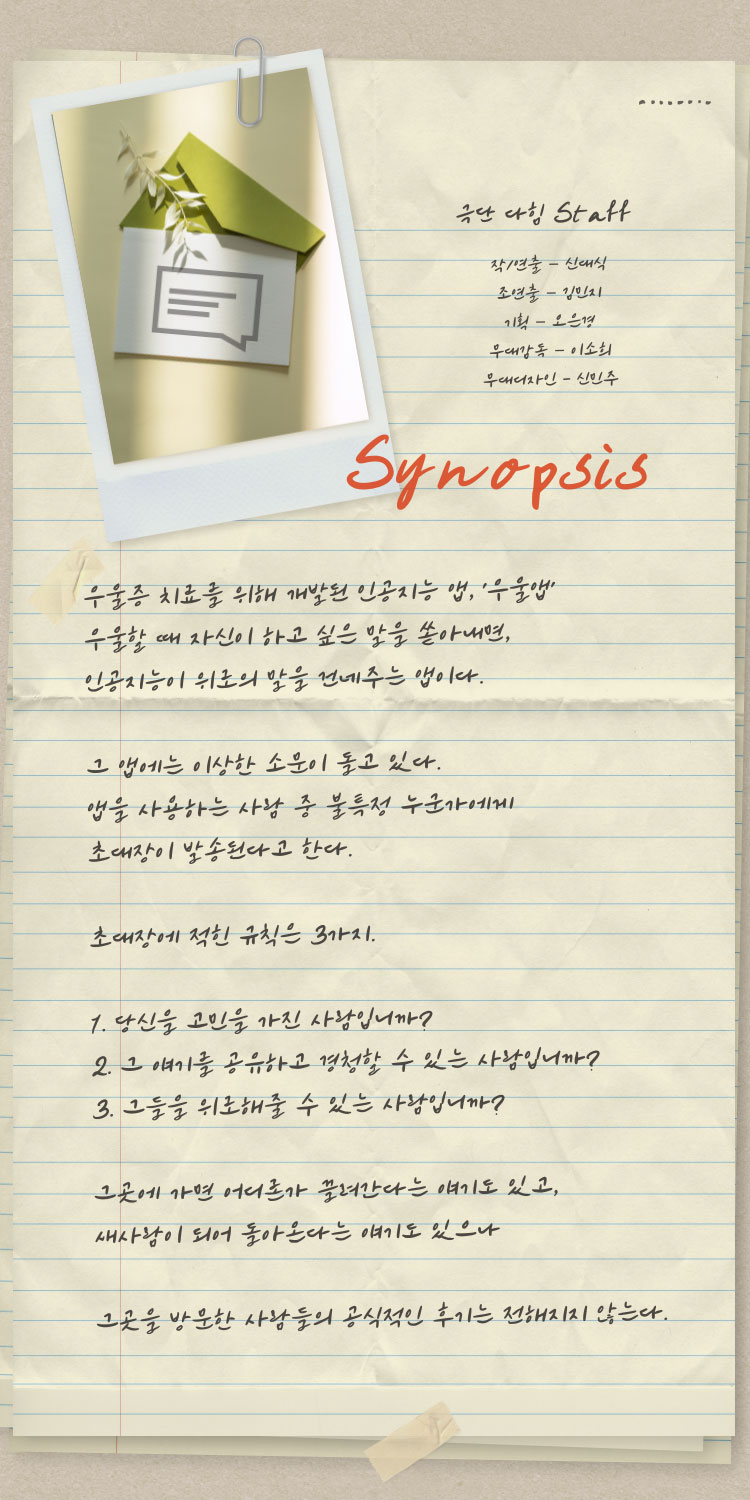 극단 다힘 Staff
작/연출 - 신대식
조연출 - 김민지
기획 - 오은경
무대감독 - 이소희
무대디자인 - 신민주
Synopsis
우울증 치료를 위해 개발된 인공지능 앱, '우울앱'
우울할 때 자신이 하고 싶은 말을 쏟아내면,
인공지능이 위로의 말을 건네주는 앱이다.
그 앱에는 이상한 소문이 돌고 있다.
앱을 사용하는 사람 중 불특정 누군가에게
초대장이 발송된다고 한다.
초대장에 적힌 규칙은 3가지.
1. 당신을 고민을 가진 사람입니까?
2. 그 얘기를 공유하고 경청할 수 있는 사람입니까?
3. 그들을 위로해줄 수 있는 사람입니까?
그곳에 가면 어디론가 끌려간다는 얘기도 있고,
새사람이 되어 돌아온다는 얘기도 있으나
그곳을 방문한 사람들의 공식적인 후기는 전해지지 않는다.